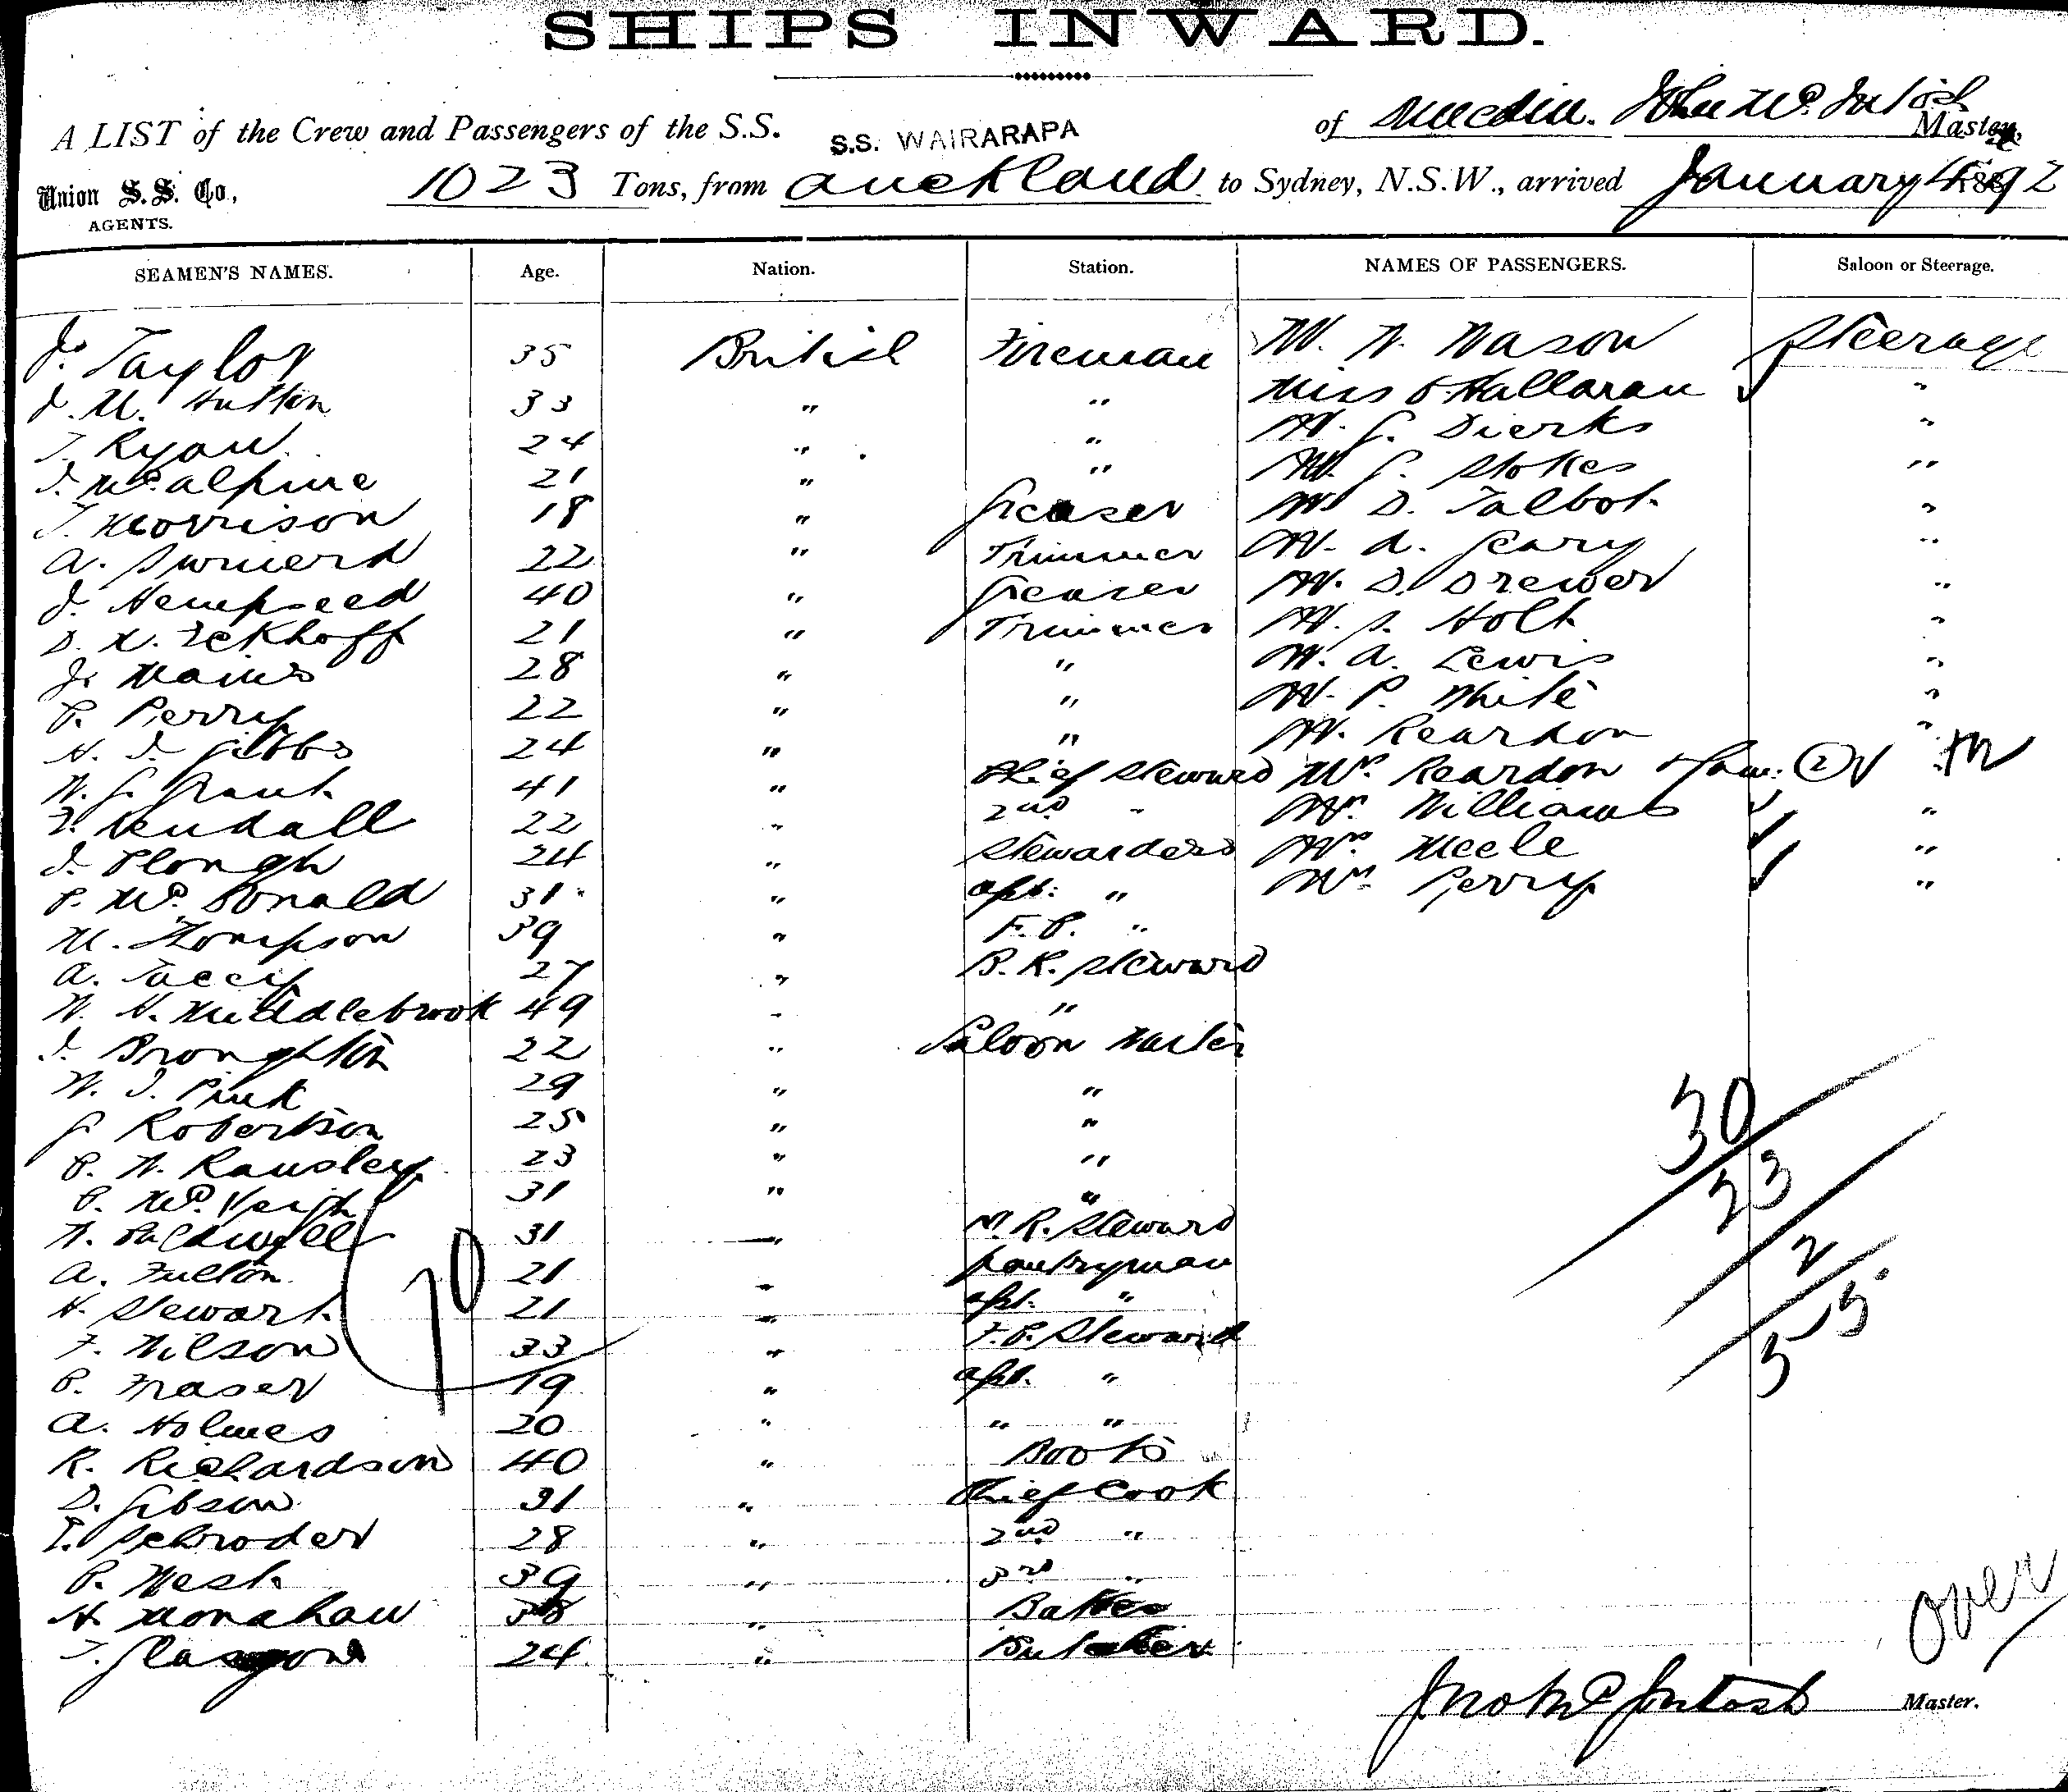 SHIPS INWARD.
A LIST of the Crew and Passengers of the S.S. S.S. WAIRARAPA of Dunedin. John McIntosh Master,
Union S.S. Co., 1023 Tons, from Auckland to Sydney, N.S.W., arrived January 4th 1892
AGENTS.
SEAMEN'S NAMES. Age. Nation. Station. NAMES OF PASSENGERS. Saloon or Steerage.
J. Taylor 35 British Fireman W. Mason Steerage
J. M. Hutton 33 " " Miss O'Hallaran "
T. Ryan 24 " " J. Dierks "
J. McAlpine 21 " " J. Stokes "
T. Morrison 18 " Greaser D. Talbot "
A. 22 " Trimmer A. Geary "
J. Hempseed 40 " Greaser D. Drewer "
D. H. Eckhoff 21 " Trimmer S. Holt "
J. 28 " " A. Lewis "
P. Perry 22 " " P. White "
H. J. Gibbs 24 " " Reardon "
W. G. Grant 41 " Chief Steward Mrs. Reardon & fam: 2
Kendall 22 " 2nd " Williams "
J. Plough 24 " Stewardess Mrs. Meele "
P. McDonald 31 " Asst: " Perry "
M. Thompson 39 " F.C. "
A. Tacey 27 " B.R. Steward
W. H. Middlebrook 49 " "
J. Broughton 22 " Saloon Waiter
W. J. Pink 29 " "
G. Robertson 25 " "
P. W. Ransley 23 " "
P. McVeigh 31 " "
W. Caldwell 31 " M.R. Steward
A. Fulton 21 " Pantryman
H. Stewart 21 " Asst. "
F. Wilson 33 " F.C. Steward
P. Fraser 19 " Asst. "
A. Holmes 20 " " "
R. Richardson 40 " Boots
D. Gibson 31 " Chief Cook
E. Schroder 28 " 2nd "
P. West 39 " 3rd "
H. Monahan 38 " Baker
T. Glasgow 24 " Butcher
70
30
23
2
55
Over
Jno McIntosh Master.